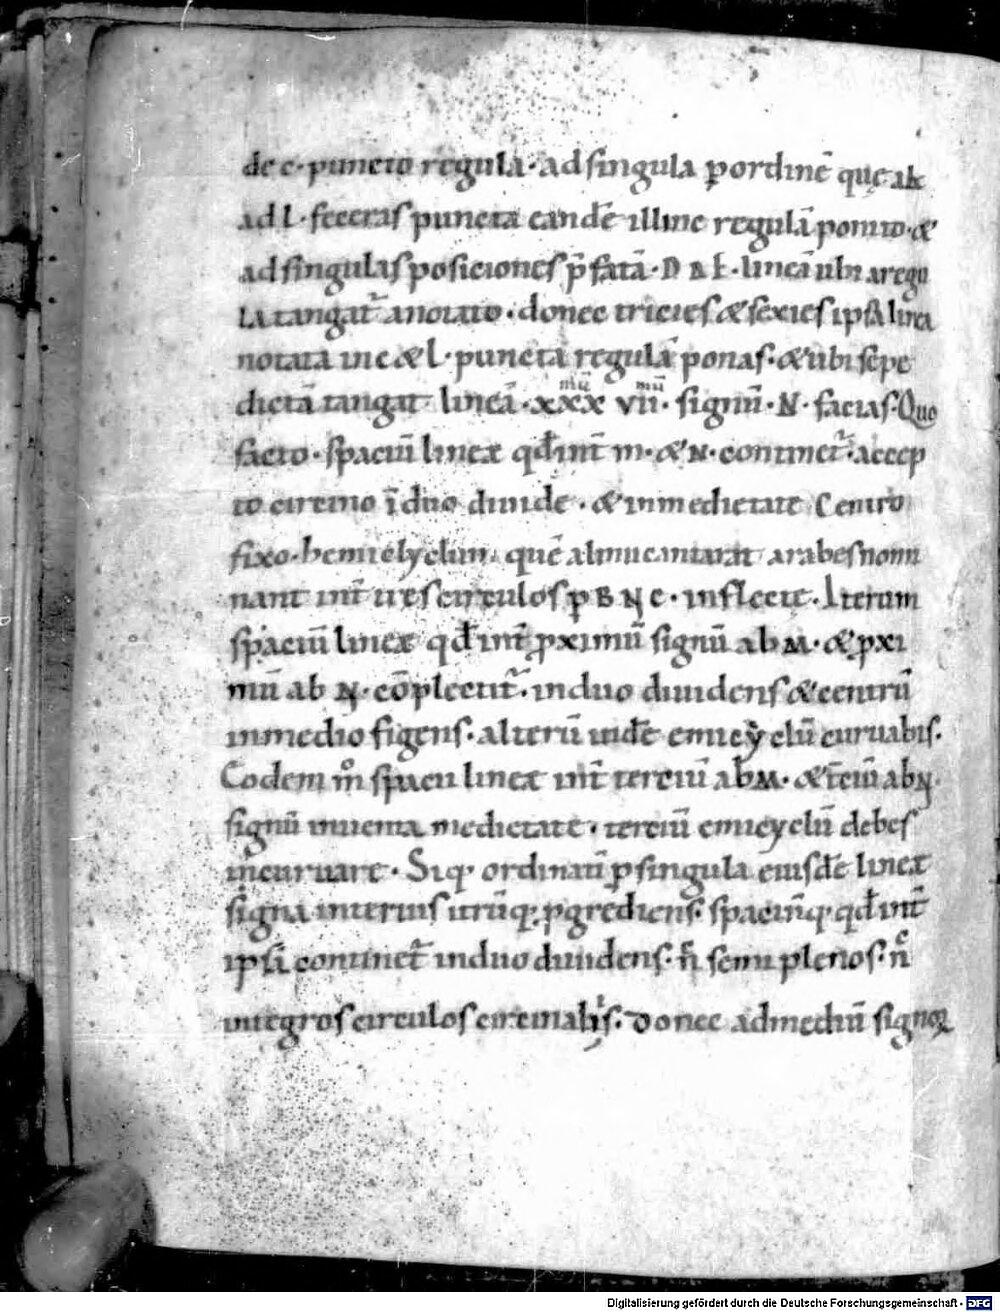 de c · puncto regula · ad singula p ordinē quę ab
ad l · feceras puncta eandē illinc regulā ponito · &
ad singulas posiciones p̄fatā · D B E · lineā ubi a regu
la tangat̄ anotato · donec tricies & sexies ipsā linea
notata in c & l · puncta regulā ponas · & ubi sepe
dictā tangat lineā · xxx mū vii mū · signū · N · facias · Quo
facto · spaciū lineæ qđ int̄ m · & N · continet̄ · accep
to circino ī duo diuide · & in medietate Centro
fixo · hemiclyclum quē almucantarat arabes nomi
nant int̄ tres circulos p B N C · inflecte · Iterum
spaciū lineæ qđ int̄ pximū signū ab M · & pxi
mū ab N · cōplectit̄ · in duo diuidens & centrū
in medio figens · alterū indē emicyclū curuabis ·
Eodem m̊ spacii lineæ int̄ terciū ab M · & t̄ciū ab N ·
signū inuenta medietate · terciū emicyclū debes
incuruare · Sicq ordinatī p singula eiusdē lineæ
signa interius utrūq · pgrediens · spaciūq · qđ int̄
ipsā continet̄ in duo diuidens · n̄ semi plenos · n̄c
integros circulos circinabis · Donec ad mediū signoꝝ
Digitalisierung gefördert durch die Deutsche Forschungsgemeinschaft - DFG